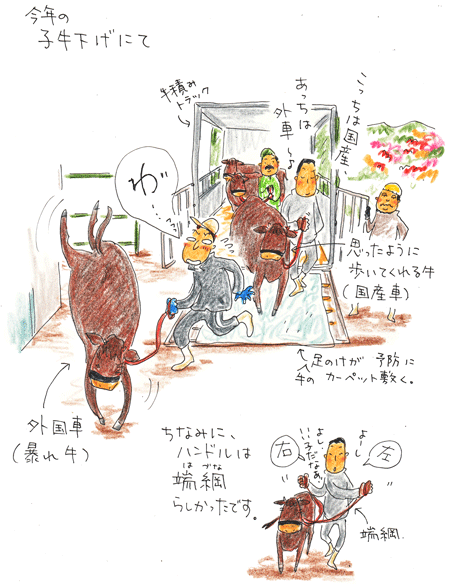 今年の
子牛下げにて
牛積み
トラック
あっちは
外車〜よ
こっちは国産、
わ゛……
思ったように
歩いてくれる牛
(国産車)
足のけが予防に
牛のカーペット敷く。
外国車
(暴れ牛)
ちなみに、
ハンドルは
端綱
はづな
らしかったです。
よーし
左
よしよし
いい子だなあ。
右
端綱